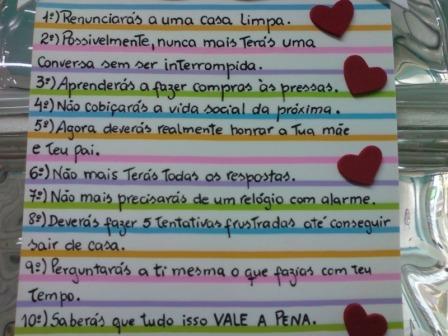 1º) Renunciarás a uma casa limpa.
2º) Possivelmente, nunca mais Terás uma
Conversa sem ser interrompida.
3º) Aprenderás a fazer compras às pressas.
4º) Não cobiçarás a vida social da próxima.
5º) Agora deverás realmente honrar a Tua mãe
e Teu pai.
6º) Não mais Terás Todas as respostas.
7º) Não mais precisarás de um relógio com alarme.
8º) Deverás fazer 5 Tentativas frustradas até conseguir
sair de casa.
9º) Perguntarás a ti mesma o que fazias com teu
Tempo.
10º) Saberás que tudo isso VALE A PENA.